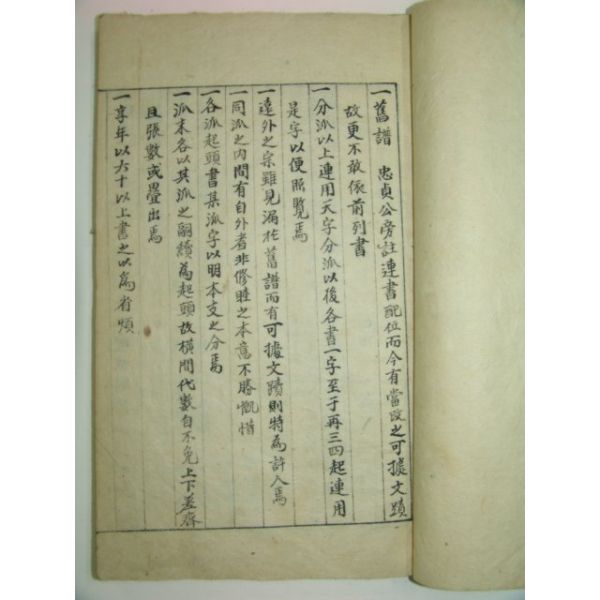 一舊譜 忠貞公旁註連書配位而今有當改之可據文蹟
故更不敢依前列書
一分派以上連用天字分派以後各書一字至于再三四起連用
是字以便照覽焉
一遠外之宗雖見漏於舊譜而有可據文蹟則特爲許入焉
一同派之內間有自外者非修睦之本意不勝慨惜
一各派起頭書某派字以明本支之分焉
一派末各以其派之嗣續爲起頭故橫間代數自不免上下差齊
且張數或疊出焉
一享年以六十以上書之以爲省煩